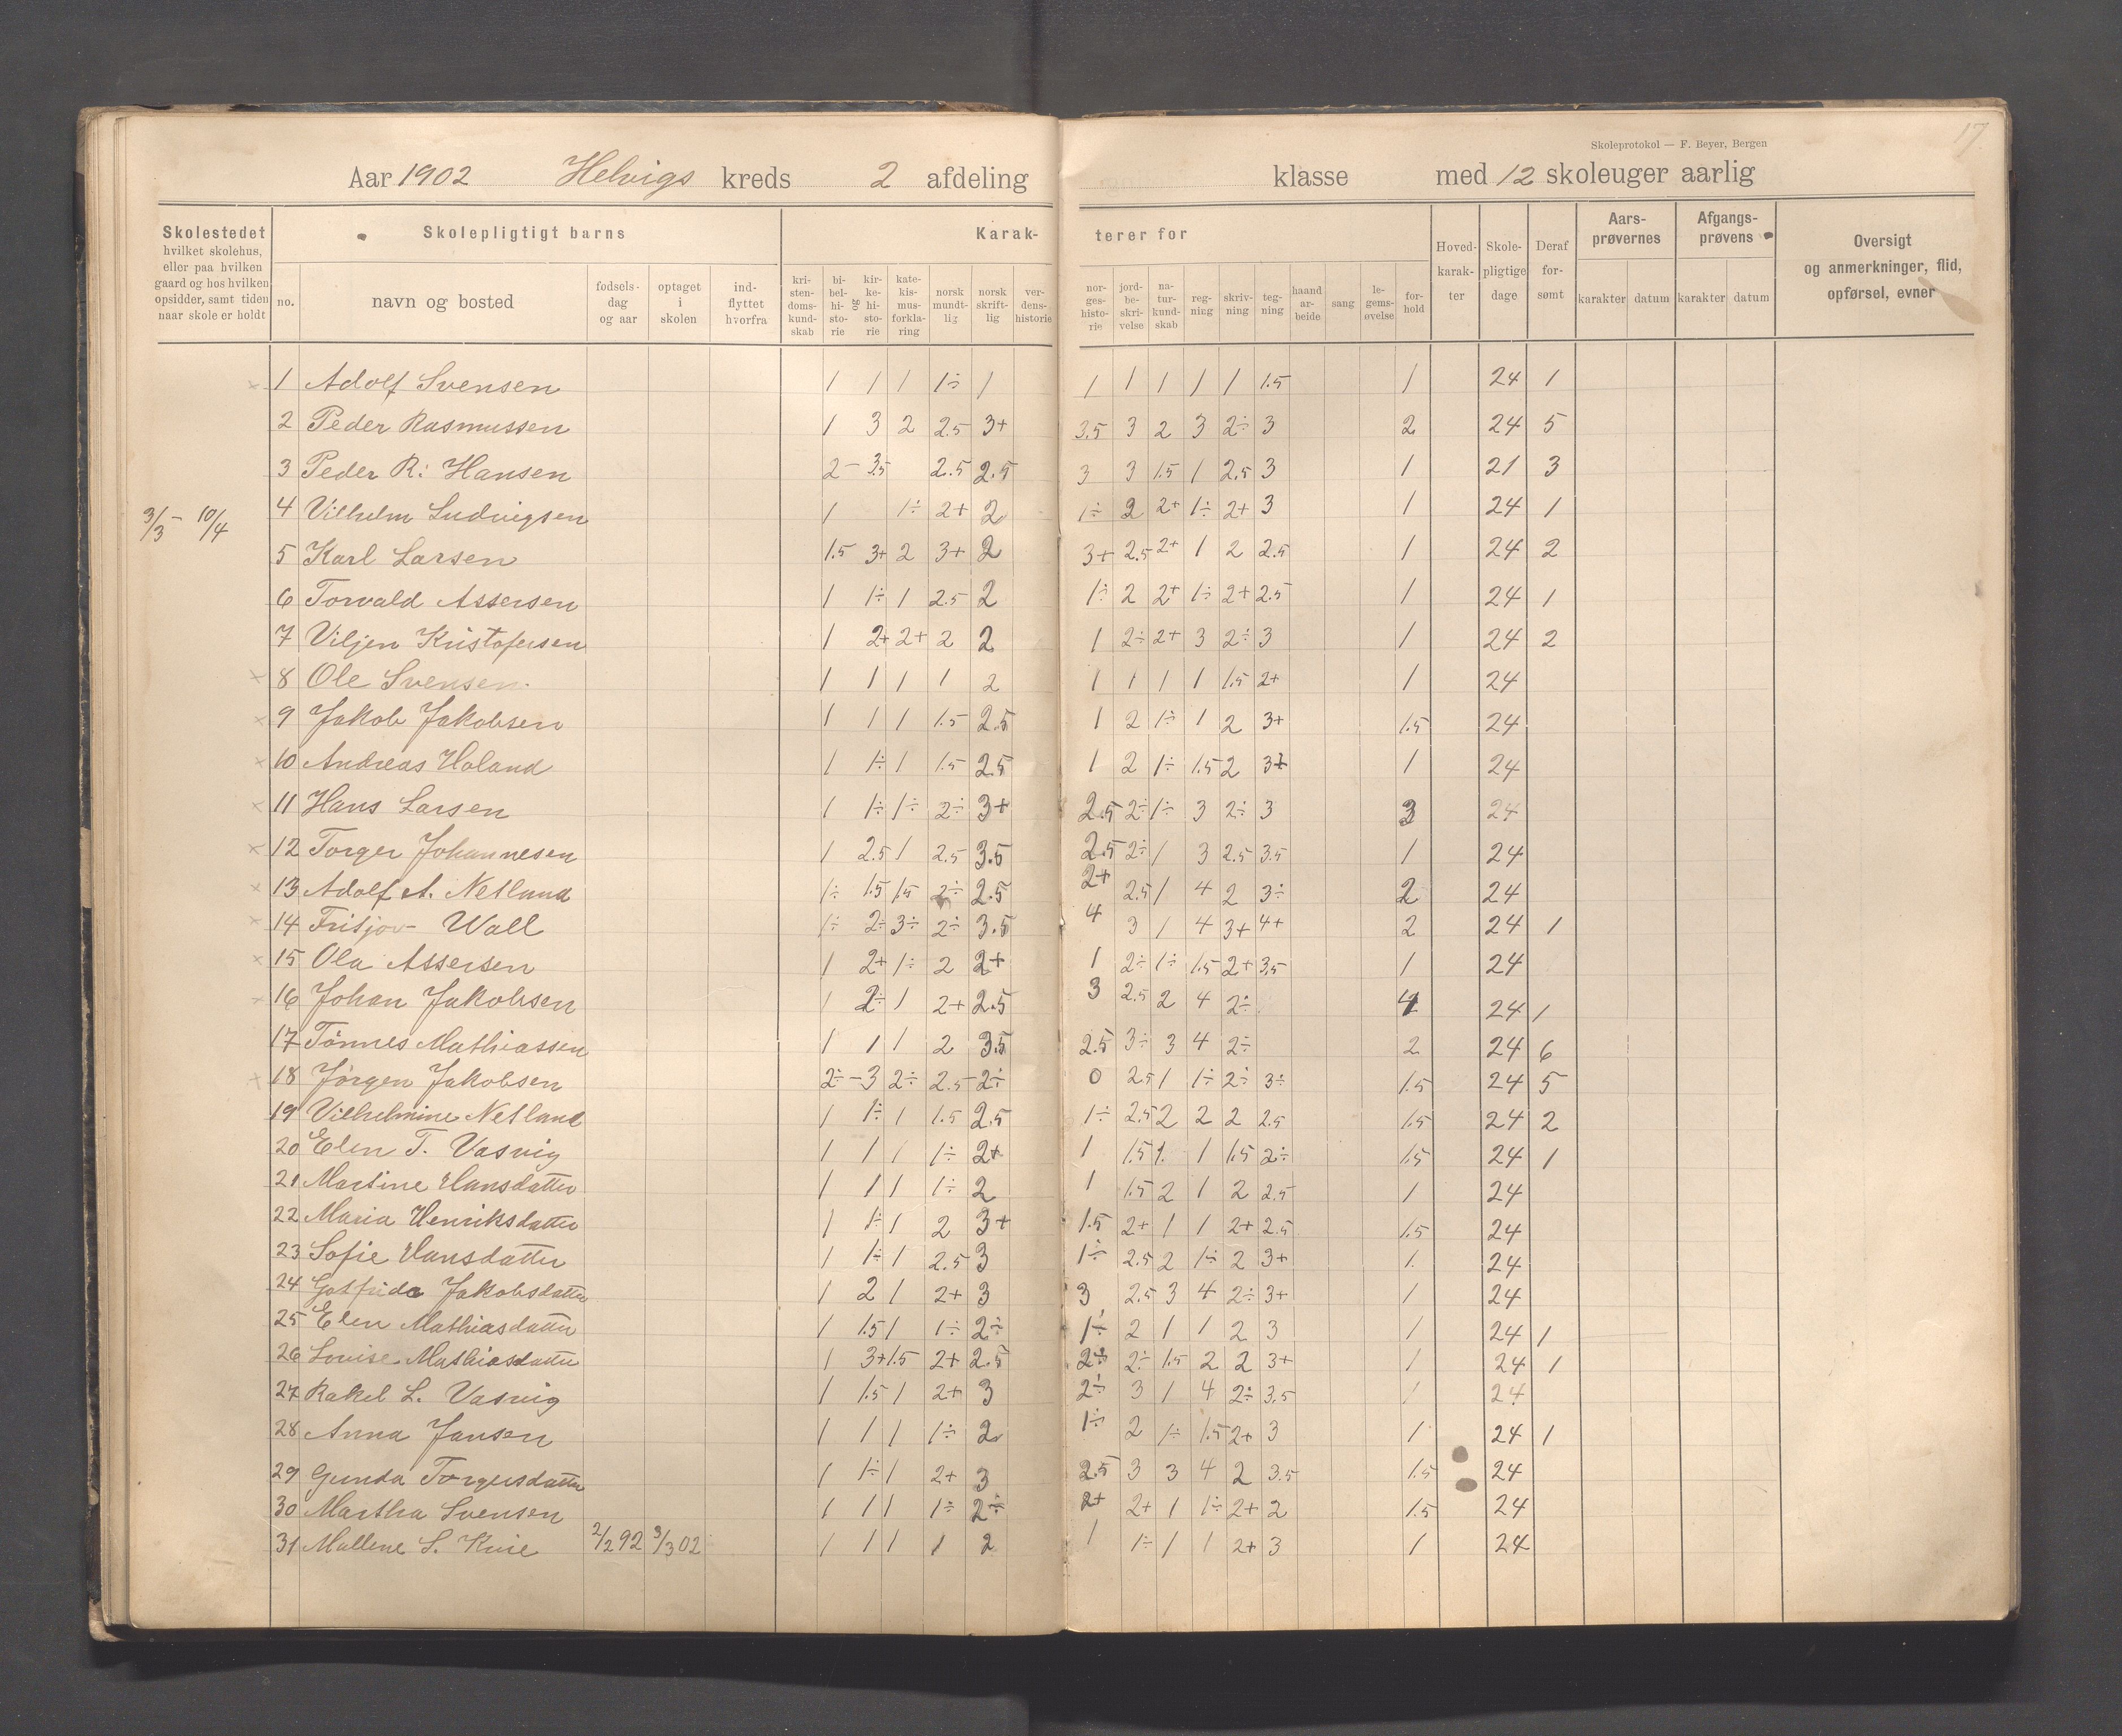 17
Skoleprotokol — F. Beyer, Bergen
Aar 1902 Helvigs kreds 2 afdeling klasse med 12 skoleuger aarlig
Skolestedet hvilket skolehus, eller paa hvilken gaard og hos hvilken opsidder, samt tiden naar skole er holdt
Skolepligtigt barns
no. navn og bosted fødsels-dag og aar optaget i skolen ind-flyttet hvorfra
Karak- terer for
kri-sten-doms-kund-skab bi-bel-hi-sto-rie og kir-ke-hi-sto-rie kate-kis-mus-forkla-ring norsk mundt-lig norsk skrift-lig ver-dens-historie
nor-ges-histo-rie jord-be-skri-velse na-tur-kund-skab reg-ning skriv-ning teg-ning haand ar-beide sang le-gems-øvelse for-hold
Hoved-karak-ter Skole-pligtige dage Deraf for-sømt
Aars-prøvernes karakter datum
Afgangs-prøvens karakter datum
Oversigt og anmerkninger, flid, opførsel, evner
3/3 – 10/4
1 Adolf Svensen 1 1 1 1÷ 1 1 1 1 1 1 1.5 1 24 1
2 Peder Rasmussen 1 3 2 2.5 3+ 3.5 3 2 3 2÷ 3 2 24 5
3 Peder R. Hansen 2– 3.5 2.5 2.5 3 3 1.5 1 2.5 3 1 21 3
4 Vilhelm Ludvigsen 1 1÷ 2+ 2 1÷ 2 2+ 1÷ 2+ 3 1 24 1
5 Karl Larsen 1.5 3+ 2 3+ 2 3+ 2.5 2+ 1 2 2.5 1 24 2
6 Torvald Assersen 1 1÷ 1 2.5 2 1÷ 2 2+ 1÷ 2+ 2.5 1 24 1
7 Viljen Kristofersen 1 2+ 2+ 2 2 1 2÷ 2+ 3 2÷ 3 1 24 2
8 Ole Svensen 1 1 1 1 2 1 1 1 1 1.5 2+ 1 24
9 Jakob Jakobsen 1 1 1 1.5 2.5 1 2 1÷ 1 2 3+ 1.5 24
10 Andreas Haland 1 1÷ 1 1.5 2.5 1 2 1÷ 1.5 2 3+ 1 24
11 Hans Larsen 1 1÷ 1÷ 2÷ 3+ 2.5 2÷ 1÷ 3 2÷ 3 3 24
12 Torger Johannesen 1 2.5 1 2.5 3.5 2.5 2÷ 1 3 2.5 3.5 1 24
13 Adolf A. Netland 1÷ 1.5 1.5 2÷ 2.5 2+ 2.5 1 4 2 3÷ 2 24
14 Fritjov Wall 1÷ 2÷ 3÷ 2÷ 3.5 4 3 1 4 3+ 4+ 2 24 1
15 Ola Assersen 1 2+ 1÷ 2 2+ 1 2÷ 1÷ 1.5 2+ 3.5 1 24
16 Johan Jakobsen 1 2÷ 1 2+ 2.5 3 2.5 2 4 2÷ 24 1
17 Tönnes Mathiassen 1 1 1 2 3.5 2.5 3÷ 3 4 2÷ 2 24 6
18 Jörgen Jakobsen 2÷ –3 2÷ 2.5 2÷ 0 2.5 1 1÷ 2÷ 3÷ 1.5 24 5
19 Vilhelmine Netland 1 1÷ 1 1.5 2.5 1÷ 2.5 2 2 2 2.5 1.5 24 2
20 Elen T. Vasvig 1 1 1 1÷ 2+ 1 1.5 1. 1 1.5 2÷ 1.5 24 1
21 Martine Hansdatter 1 1 1 1÷ 2 1 1.5 2 1 2 2.5 1 24
22 Maria Henriksdatter 1 1÷ 1 2 3+ 1.5 2+ 1 1 2+ 2.5 1.5 24
23 Sofie Hansdatter 1 1÷ 1 2.5 3 1÷ 2.5 2 1÷ 2 3+ 1. 24
24 Gotfrida Jakobsdatter 1 2 1 2+ 3 3 2.5 3 4 2÷ 3+ 1 24
25 Elen Mathiasdatter 1 1.5 1 1÷ 2÷ 1÷ 2 1 1 2 3 1 24 1
26 Louise Mathiasdatter 1 3+ 1.5 2+ 2.5 2÷ 2÷ 1.5 2 2 3+ 1 24 1
27 Rakel L. Vasvig 1 1.5 1 2+ 3 2÷ 3 1 4 2÷ 3.5 1 24
28 Anna Jansen 1 1 1 1÷ 2 1÷ 2 1÷ 1.5 2+ 3 1 24 1
29 Gunda Torgersdatter 1 1÷ 1 2+ 3 2.5 3 3 4 2 3.5 1.5 24
30 Martha Svensen 1 1 1 1÷ 2÷ 2+ 2+ 1 1÷ 2+ 2 1.5 24
31 Mallene S. Kvie 2/2 92 3/3 02 1 1 1 1 2 1 1÷ 1 1 2+ 3 1 24